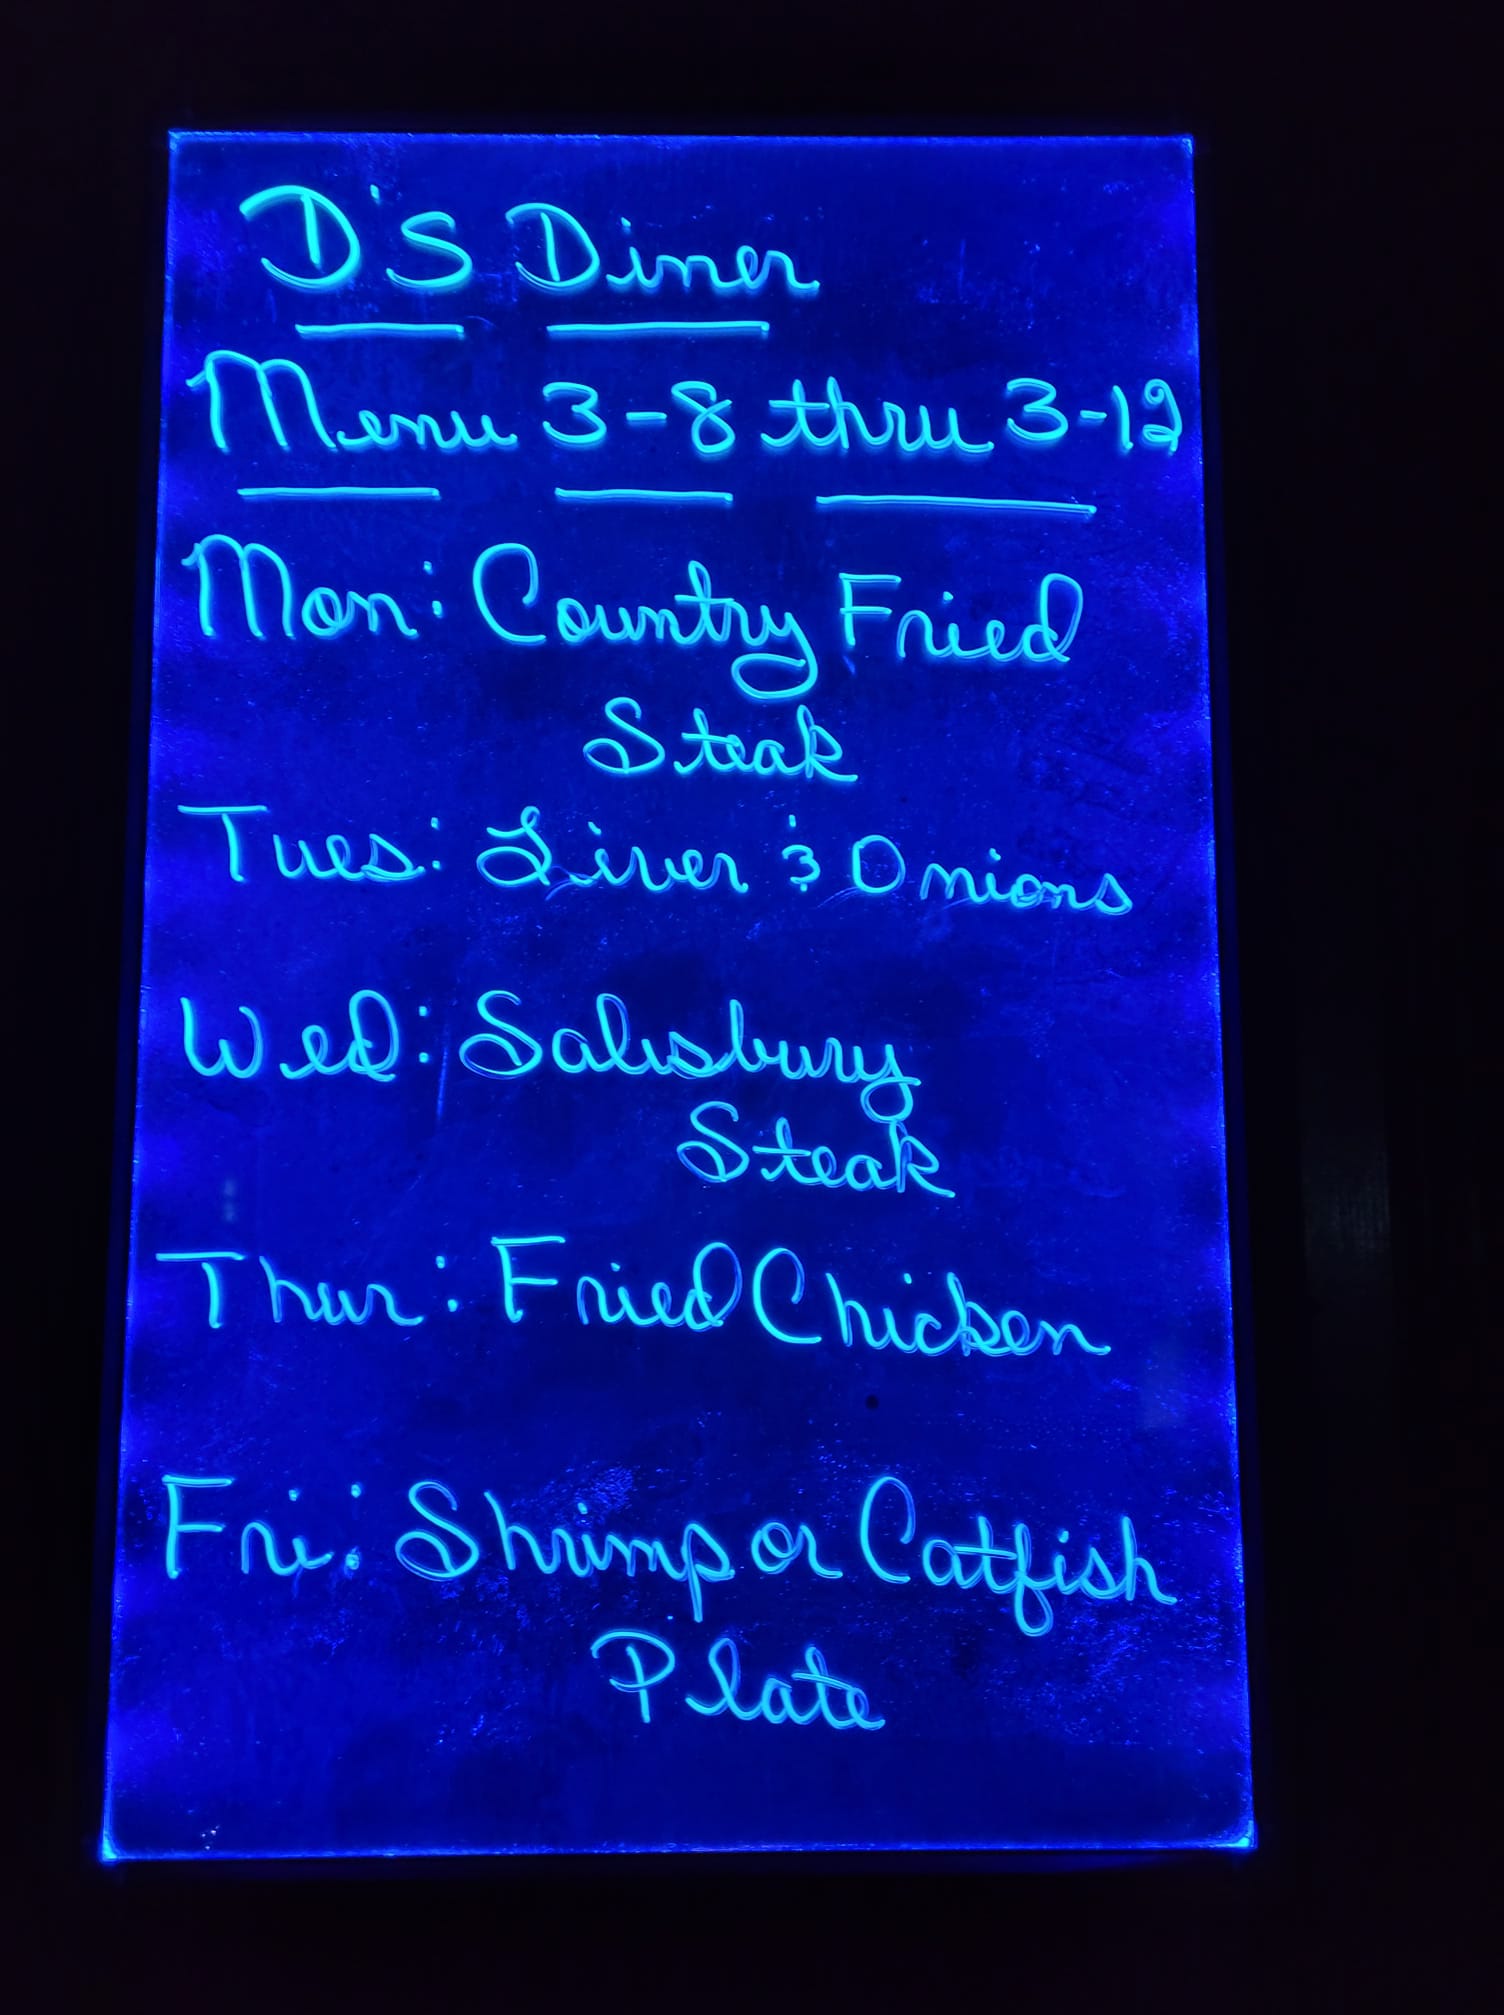 D'S Diner
Menu 3-8 thru 3-12
Mon: Country Fried
Steak
Tues: Liver & Onions
Wed: Salisbury
Steak
Thur: Fried Chicken
Fri: Shrimp or Catfish
Plate